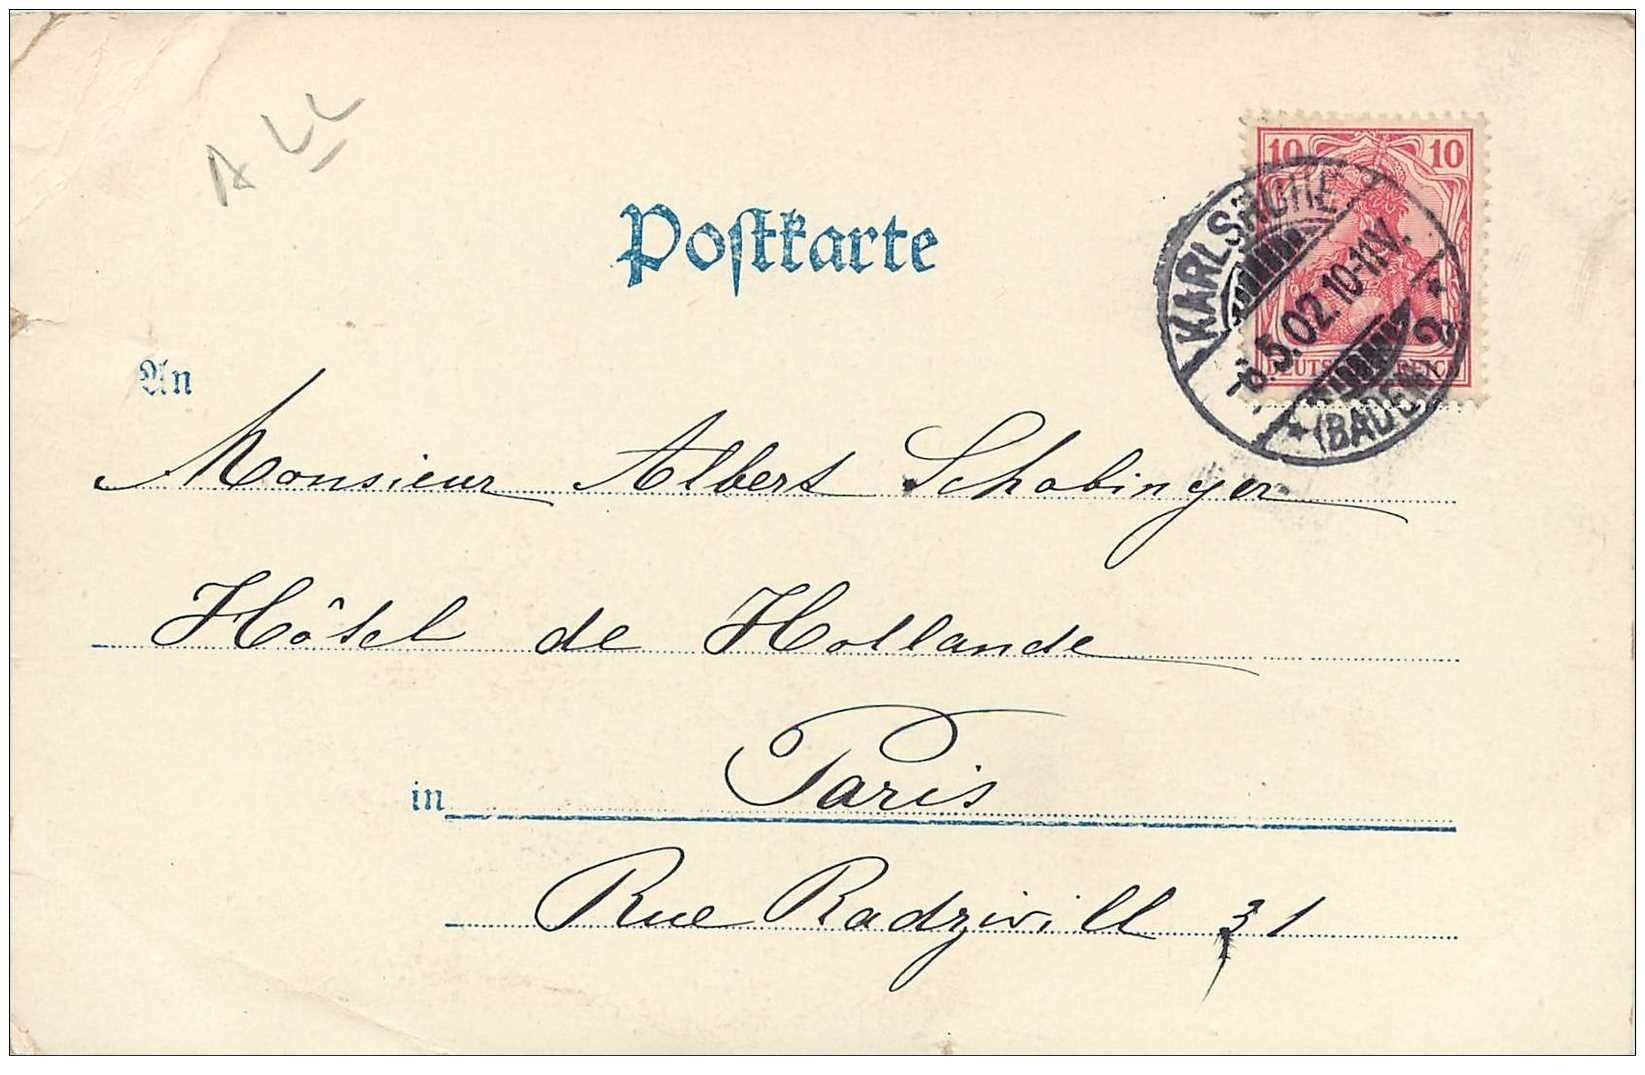 ALL
Postkarte
10 10
DEUTSCHES REICH
KARLSRUHE 2
-6.5.02.10-11V.
(BADEN)
An
Monsieur Albert Schobinger
Hôtel de Hollande
in Paris
Rue Radziwill 31